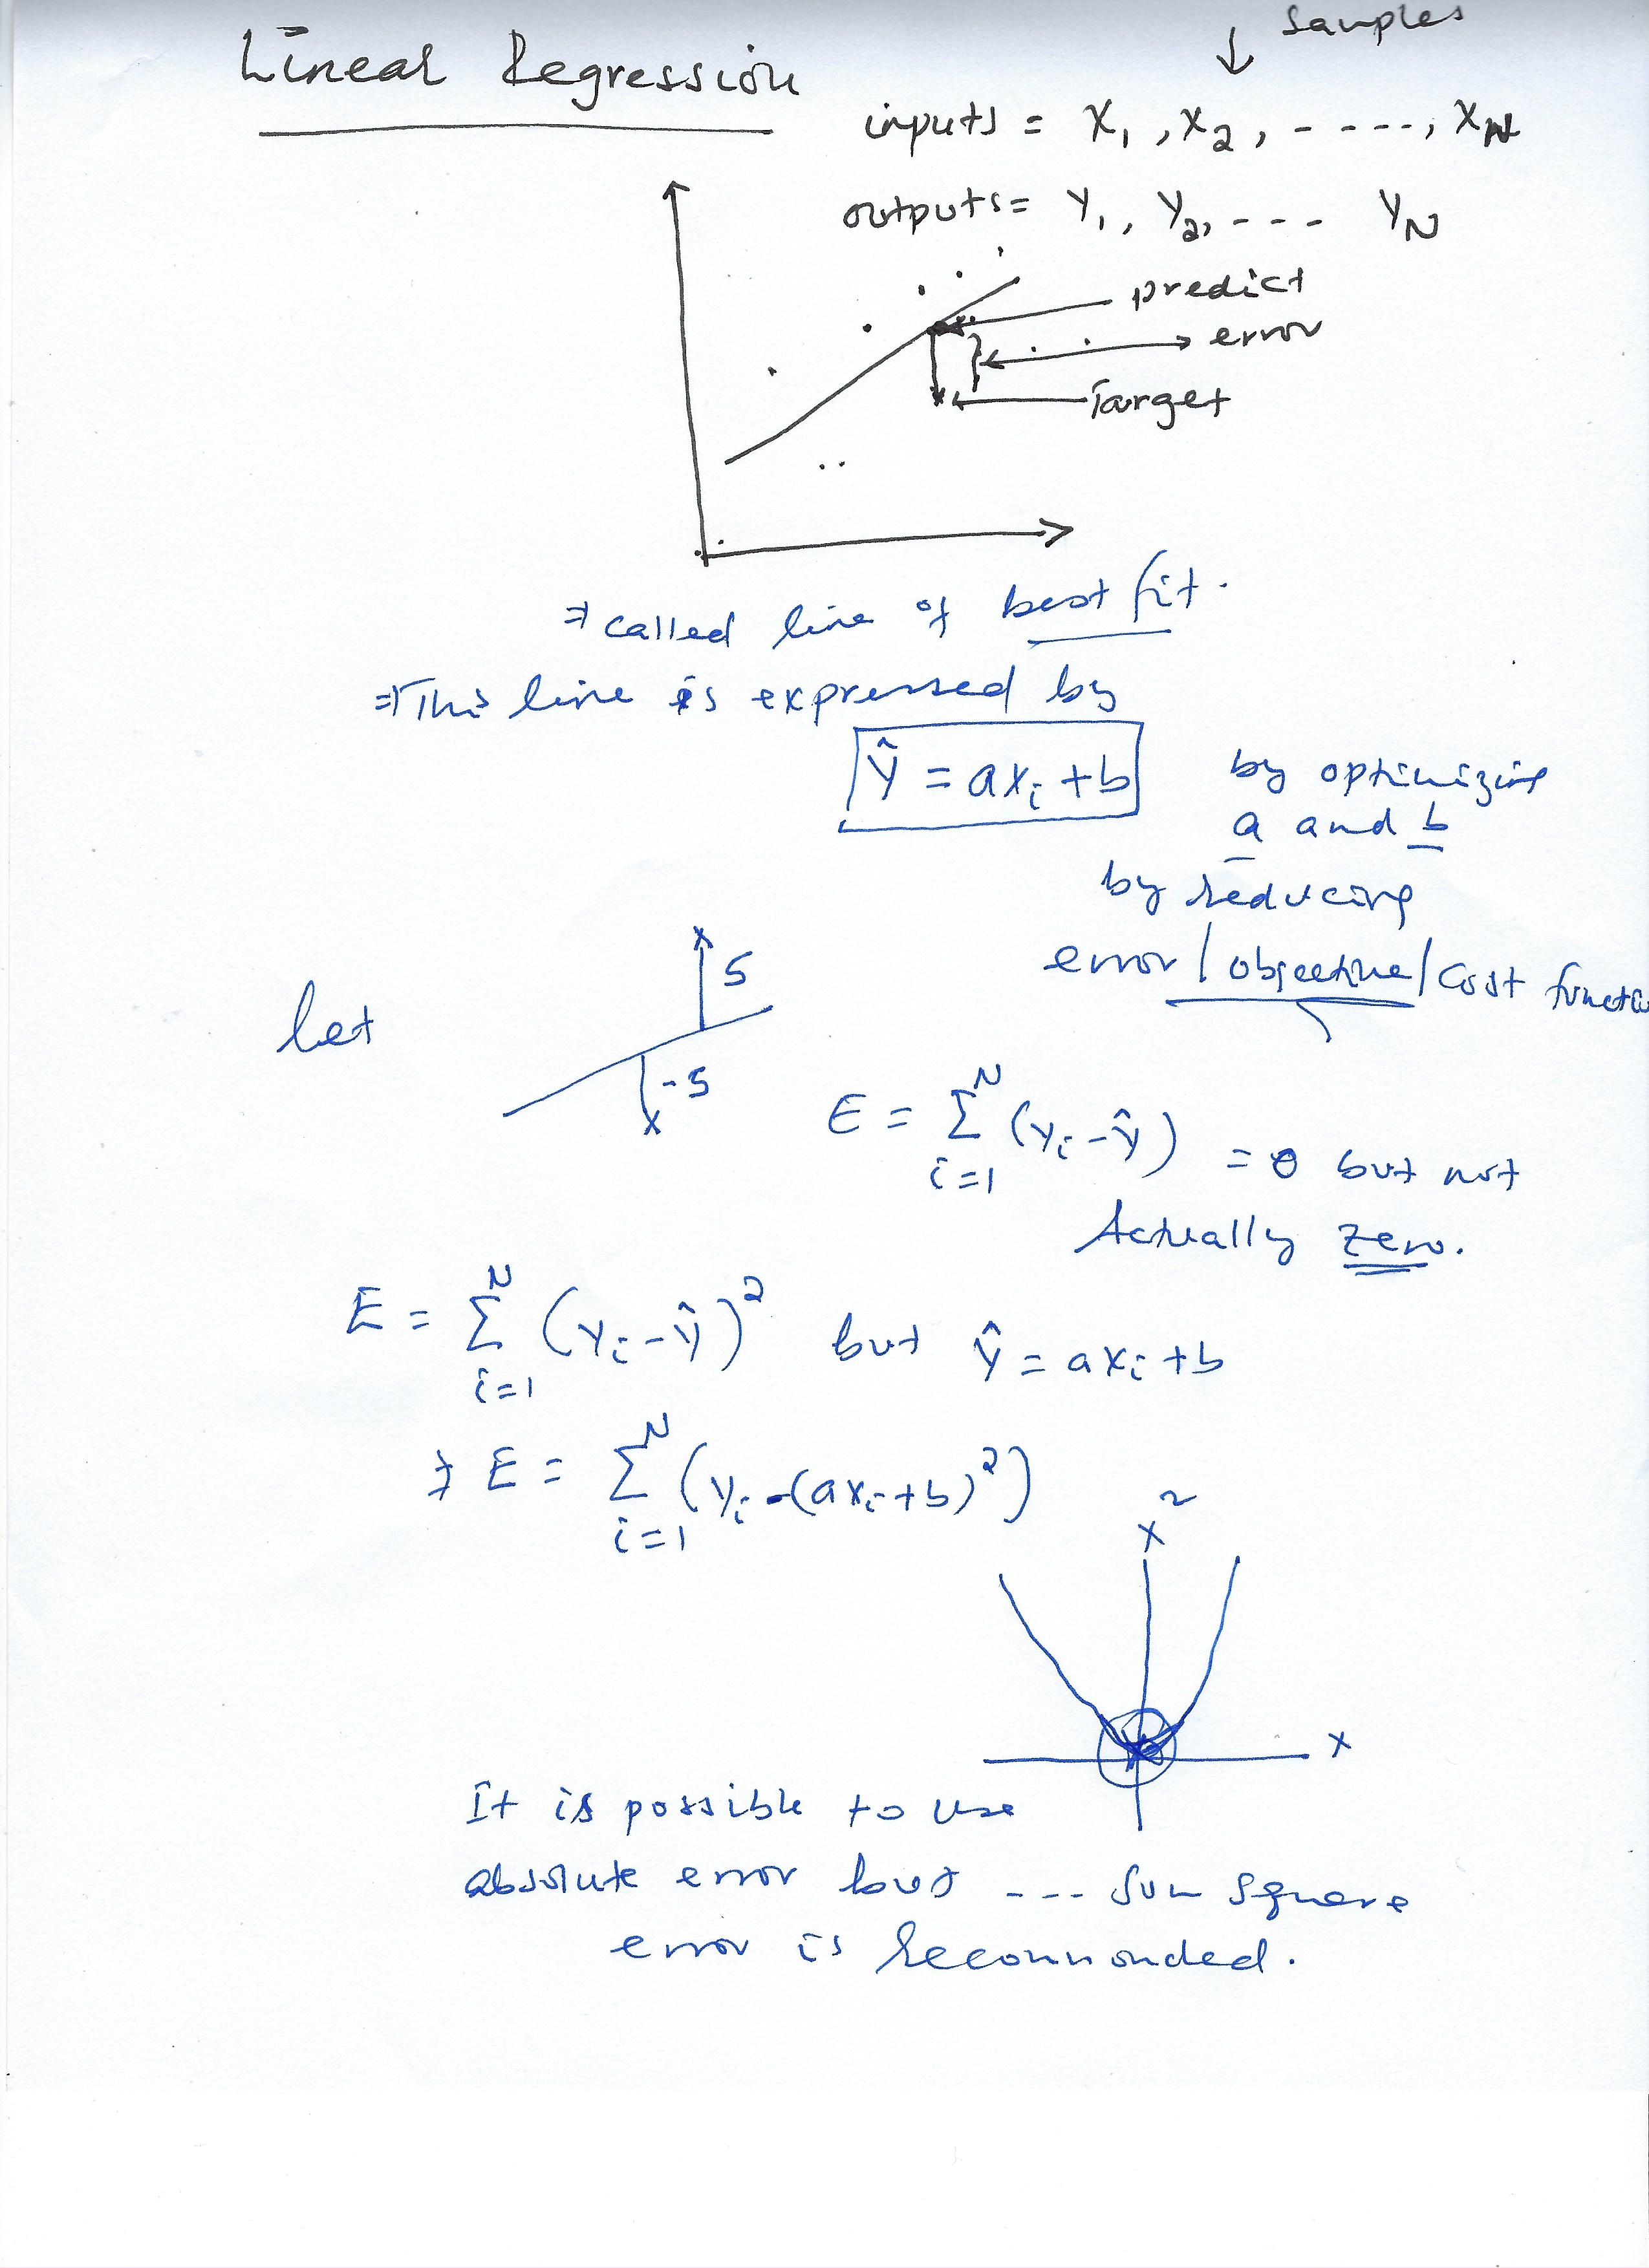 Linear Regression
↓ samples
inputs = X₁, X₂, - - - - -, X_N
outputs = Y₁, Y₂, - - - Y_N
predict
error
Target
⇒ called line of best fit.
⇒ This line is expressed by
Ŷ = axᵢ + b
by optimizing
a and b
by reducing
error / objective / Cost functio
let
5
-5
E = Σ_{i=1}^{N} (yᵢ - ŷ) = 0 but not
Actually zero.
E = Σ_{i=1}^{N} (yᵢ - ŷ)² but ŷ = axᵢ + b
⇒ E = Σ_{i=1}^{N} (yᵢ - (axᵢ + b)²)
x²
x
It is possible to use
absolute error but - - - sum square
error is recommonded.